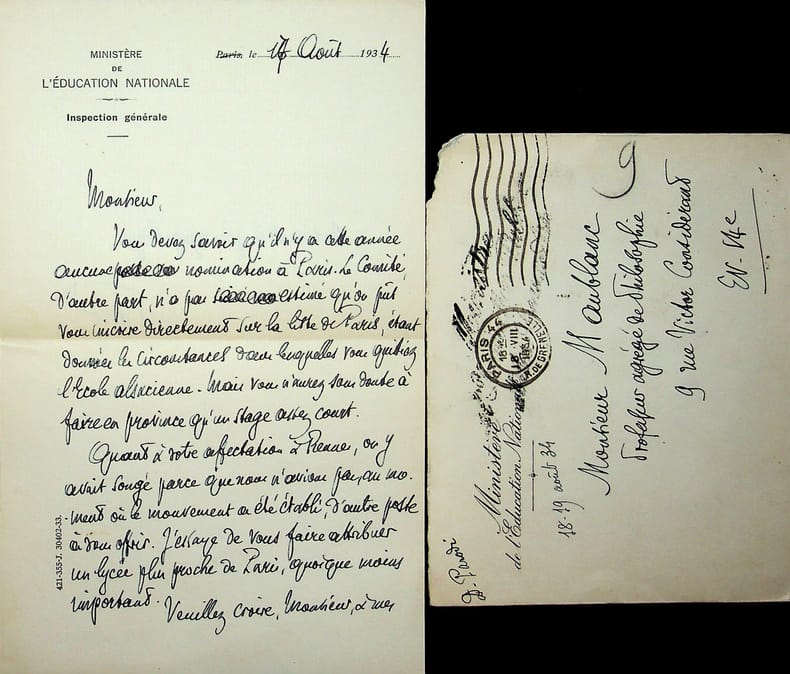 MINISTÈRE
DE
L'ÉDUCATION NATIONALE
Inspection générale
Paris, le 17 Août 1934
Monsieur,
Vous devez savoir qu'il n'y a cette année
aucune nomination à Paris. Le Comité,
d'autre part, n'a pas estimé qu'on pût
vous inscrire directement sur la liste de Paris, étant
données les circonstances dans lesquelles vous quittiez
l'Ecole alsacienne. Mais vous n'aurez sans doute à
faire en province qu'un stage assez court.
Quant à votre affectation à Rennes, on y
avait songé parce que nous n'avions pas, au mo-
ment où le mouvement a été établi, d'autre poste
à vous offrir. J'essaye de vous faire attribuer
un lycée plus proche de Paris, quoique moins
important.
Veuillez croire, Monsieur, à mes
421-355-J. 30402-33.
PARIS 44
18 VIII
1934
R. DE GRENELLE
Monsieur Maublanc
Professeur agrégé de Philosophie
9 rue Victor Considérant
EV. 14e
Ministère
de l'Education Nationale
18-19 août 34
D. Parodi